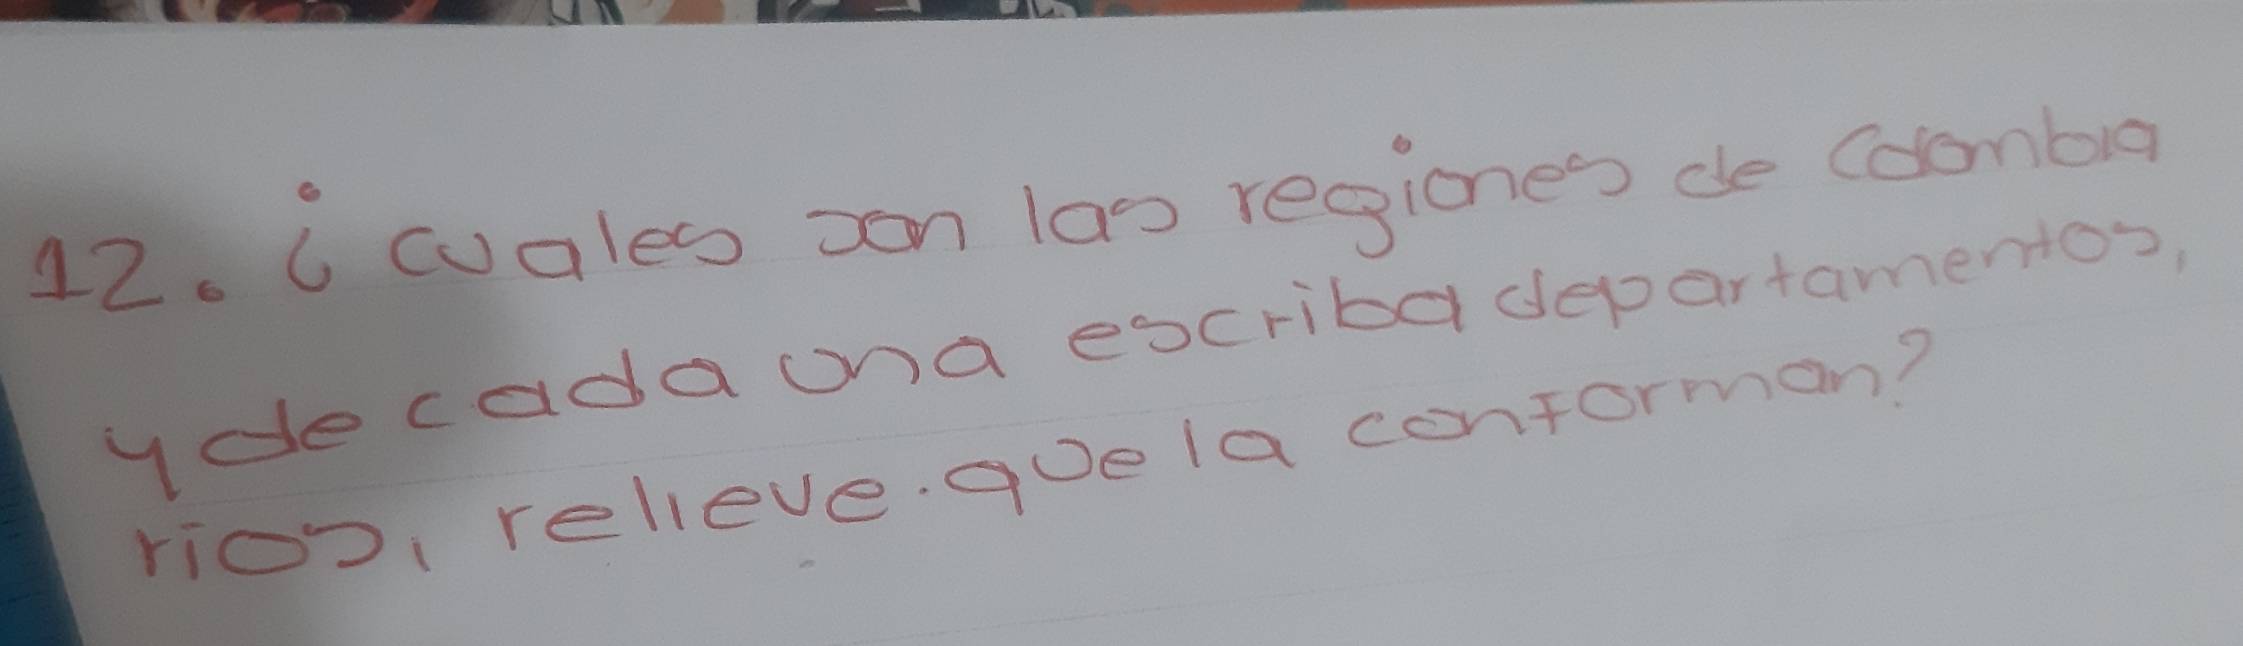 12. ¿ cuales son las regiones de Colombia
y de cada una escriba departamentos,
rios, relieve. que la conforman?